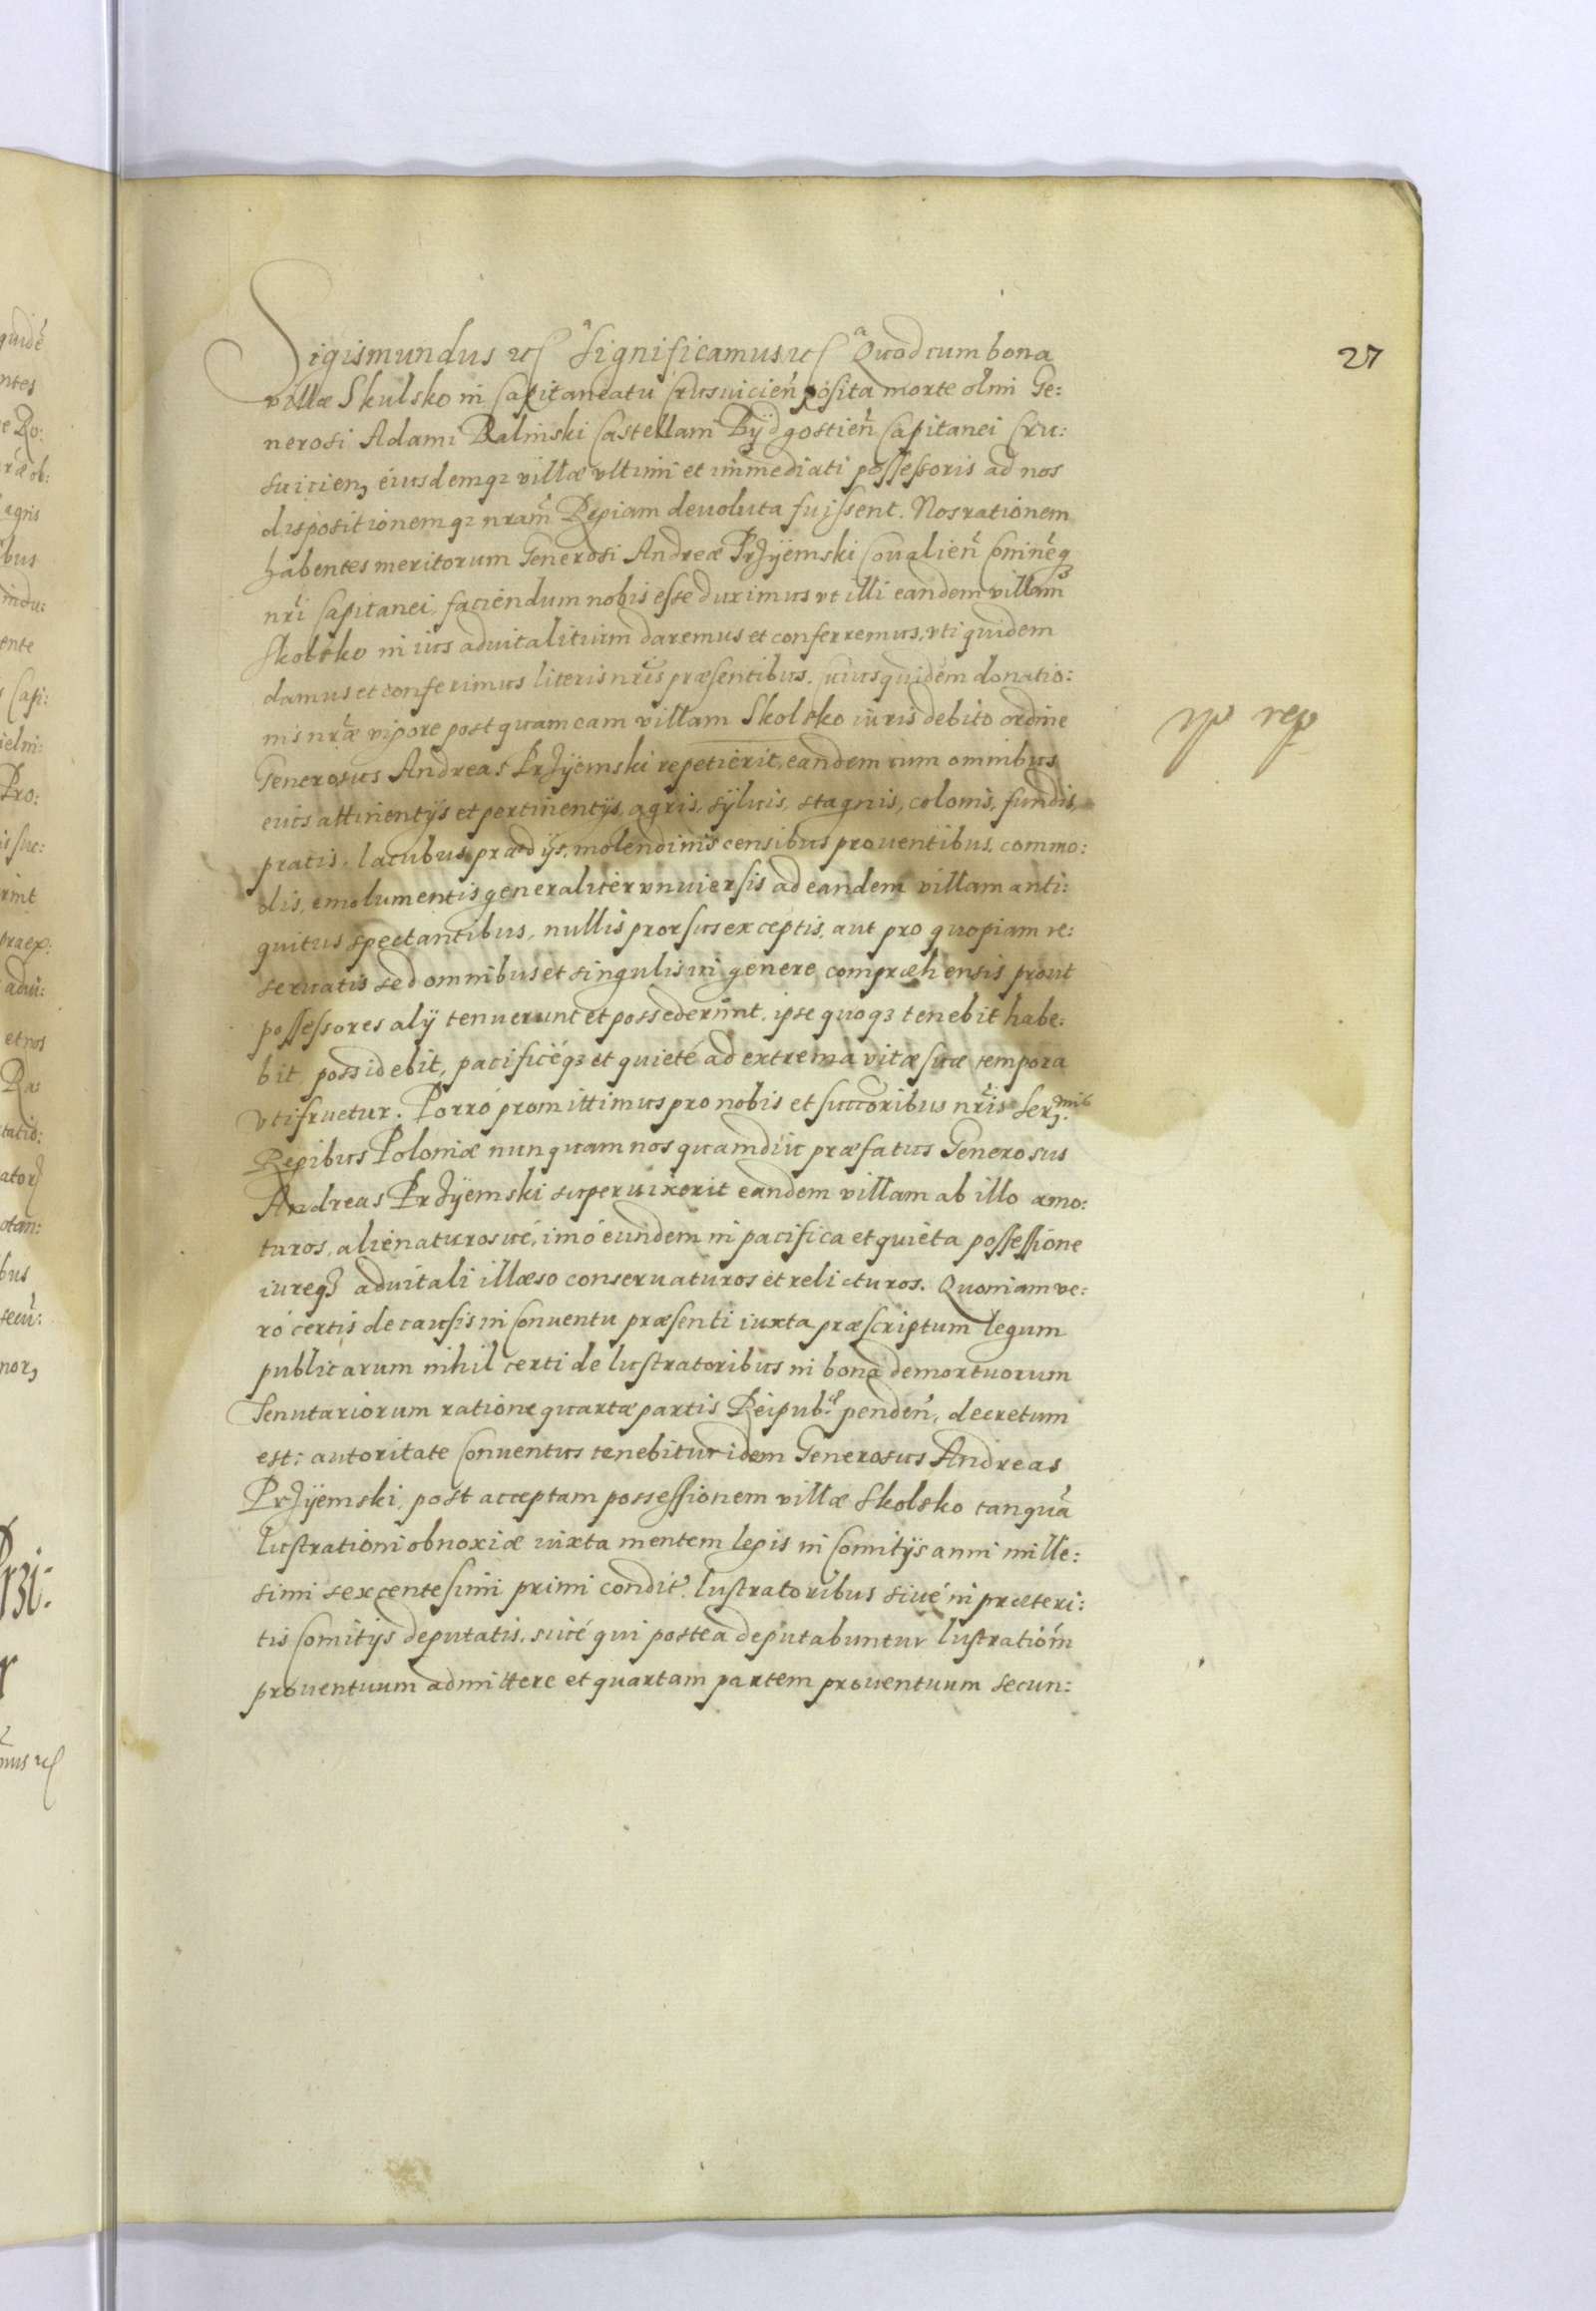 27
Sigismundus etc Significamus etc Quod cum bona
villæ Skulsko in Capitaneatu Crusuicień posita morte olim Ge:
nerosi Adami Balinski Castellani Bÿdgostień Capitanei Cru:
suicień, eiusdemq3 villæ vltimi et immediati possessoris ad nos
dispositionemq3 nram̃ Regiam deuoluta fuissent. Nos rationem
habentes meritorum Generosi Andreæ Przÿemski Coualień Coninẽq3
nri Capitanei, faciendum nobis esse duximus vt illi eandem villam
Skolsko in ius aduitalitium daremus et conferremus, vti quidem
damus et conferimus literis nris præsentibus. Cuius quidem donatio:
nis nræ vigore post quam eam villam Skolsko iuris debito ordine
Generosus Andreas Przÿemski repetierit, eandem cum omnibus
eius attinentÿs et pertinentÿs, agris, sÿluis, stagnis, colonis, fundis,
pratis, lacubus, prædÿs, molendinis censibus prouentibus, commo:
dis, emolumentis generaliter vniuersis ad eandem villam anti:
quitus spectantibus, nullis prorsus exceptis, aut pro quopiam re:
seruatis sed omnibus et singulis in genere compræhensis prout
possessores alÿ tenuerunt et possederunt, ipse quoq3 tenebit habe:
bit, possidebit, pacificéq3 et quieté ad extrema vitæ suæ tempora
vtifruetur. Porró promittimus pro nobis et succoribus nris Ser.mis
Regibus Poloniæ nunquam nos quamdiu præfatus Generosus
Andreas Przÿemski superuixerit eandem villam ab illo amo:
turos, alienaturosué, imó eundem in pacifica et quieta possessione
iureq3 aduitali illæso conseruaturos et relicturos. Quoniam ve:
ró certis de causis in Conuentu præsenti iuxta præscriptum legum
publicarum nihil certi de lustratoribus in bona demortuorum
Tenutariorum ratione quartæ partis Reipub. pendeń, decretum
est: autoritate Conuentus tenebitur idem Generosus Andreas
Przÿemski, post acceptam possessionem villæ Skolsko tanquã
lustrationi obnoxiæ iuxta mentem legis in Comitÿs anni mille:
simi sexcentesimi primi condit. lustratoribus siué in præteri:
tis Comitÿs deputatis, siué qui postea deputabuntur lustratiom̃
prouentuum admittere et quartam partem prouentuum secun: